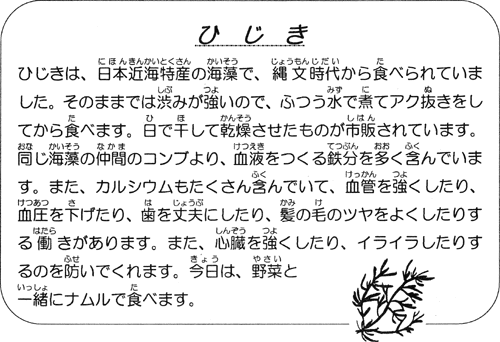 ひじき
ひじきは、日本近海特産の海藻で、縄文時代から食べられていま
した。そのままでは渋みが強いので、ふつう水で煮てアク抜きをし
てから食べます。日で干して乾燥させたものが市販されています。
同じ海藻の仲間のコンブより、血液をつくる鉄分を多く含んでいま
す。また、カルシウムもたくさん含んでいて、血管を強くしたり、
血圧を下げたり、歯を丈夫にしたり、髪の毛のツヤをよくしたりす
る働きがあります。また、心臓を強くしたり、イライラしたりす
るのを防いでくれます。今日は、野菜と
一緒にナムルで食べます。